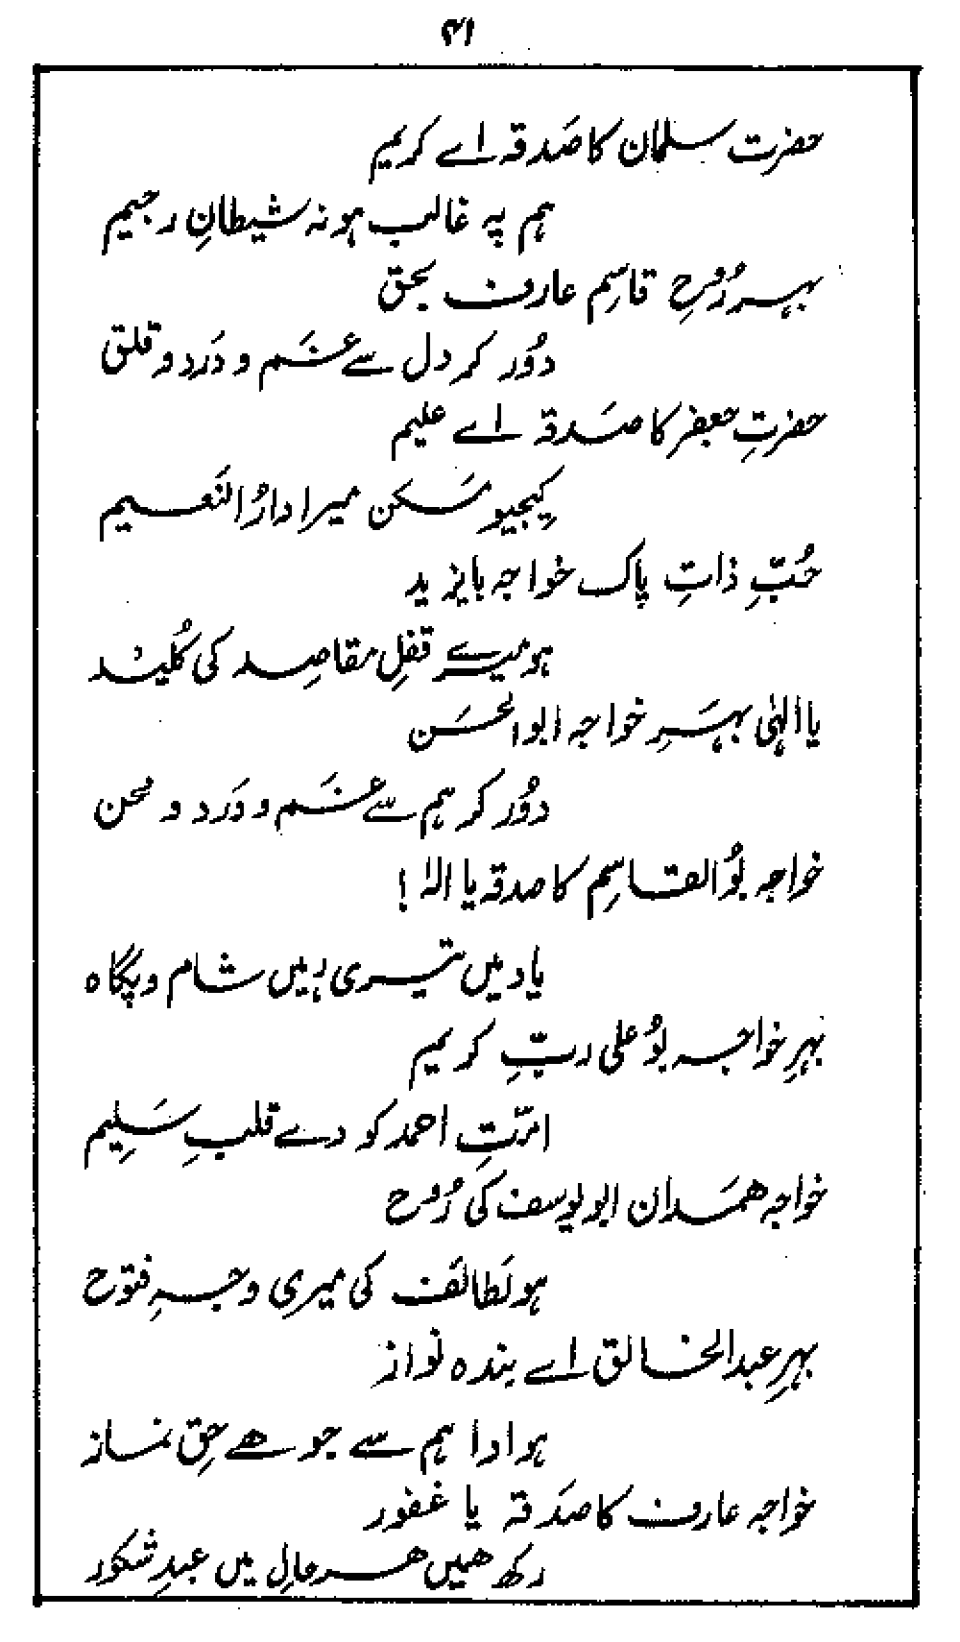 ۴۱
حضرت سلمان کا صَدقہ اے کریم
ہم پہ غالب ہو نہ شیطانِ رجیم
بہرِ رُوحِ قاسِم عارف بحق
دُور کر دل سے غَم و دَرد و قلق
حضرتِ جعفر کا صَدقہ اے علیم
کیجیو مَسکن میرا دارُ النَعیم
حُبِّ ذاتِ پاک خواجہ بایزید
ہو میرے قفلِ مقاصِد کی کُلید
یا الٰہی بہَرِ خواجہ ابوالحسَن
دُور کر ہم سے غَم و دَرد و محن
خواجہ بُوالقاسِم کا صدقہ یا الٰہ !
یاد میں تیری رہیں شام و پگاہ
بہرِ خواجہ بُو علی ربِّ کریم
امّتِ احمد کو دے قلبِ سَلِیم
خواجہ ھمَدان ابو یوسف کی رُوح
ہو لَطائف کی میری وجہِ فتوّح
بہرِ عبدالخالق اے بندہ نواز
ہو ادا ہم سے جو ھے حِقّ نماز
خواجہ عارف کا صَدقہ یا غفور
رکھ ھمیں ھر حالِ میں عبدِ شکور